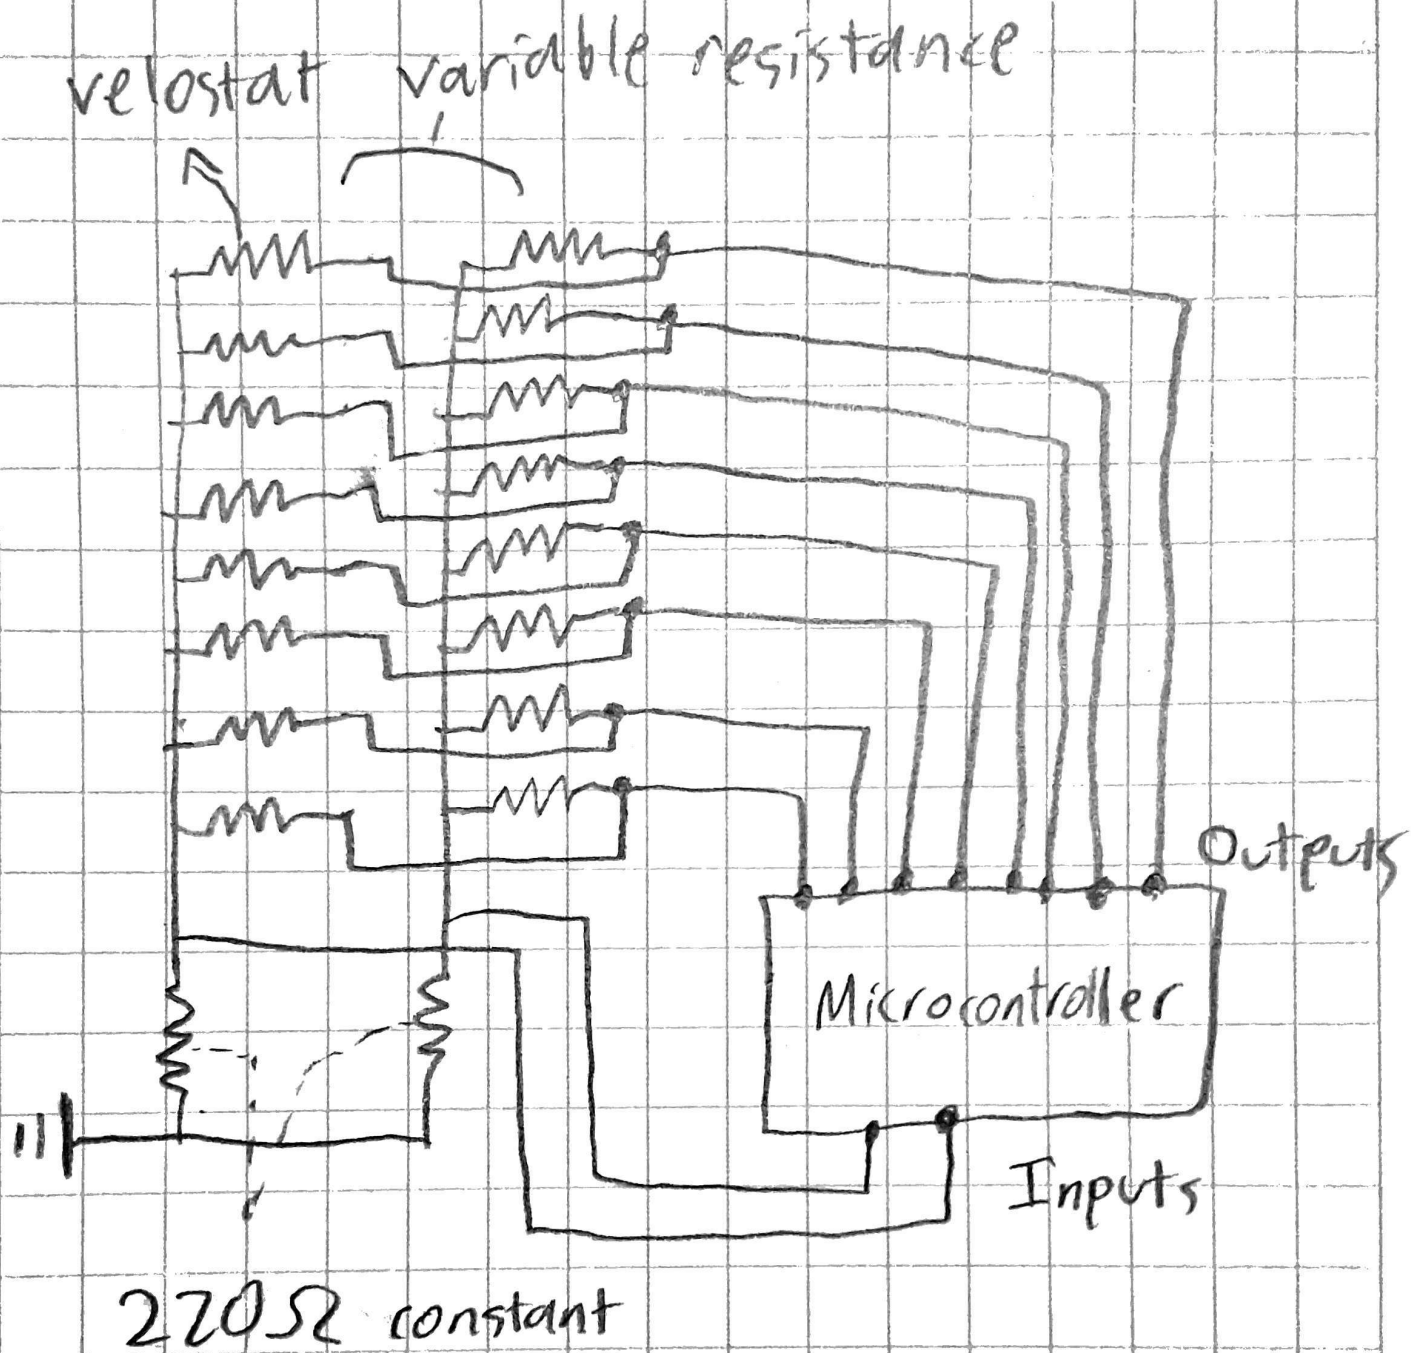 velostat variable resistance
Outputs
Microcontroller
Inputs
220Ω constant